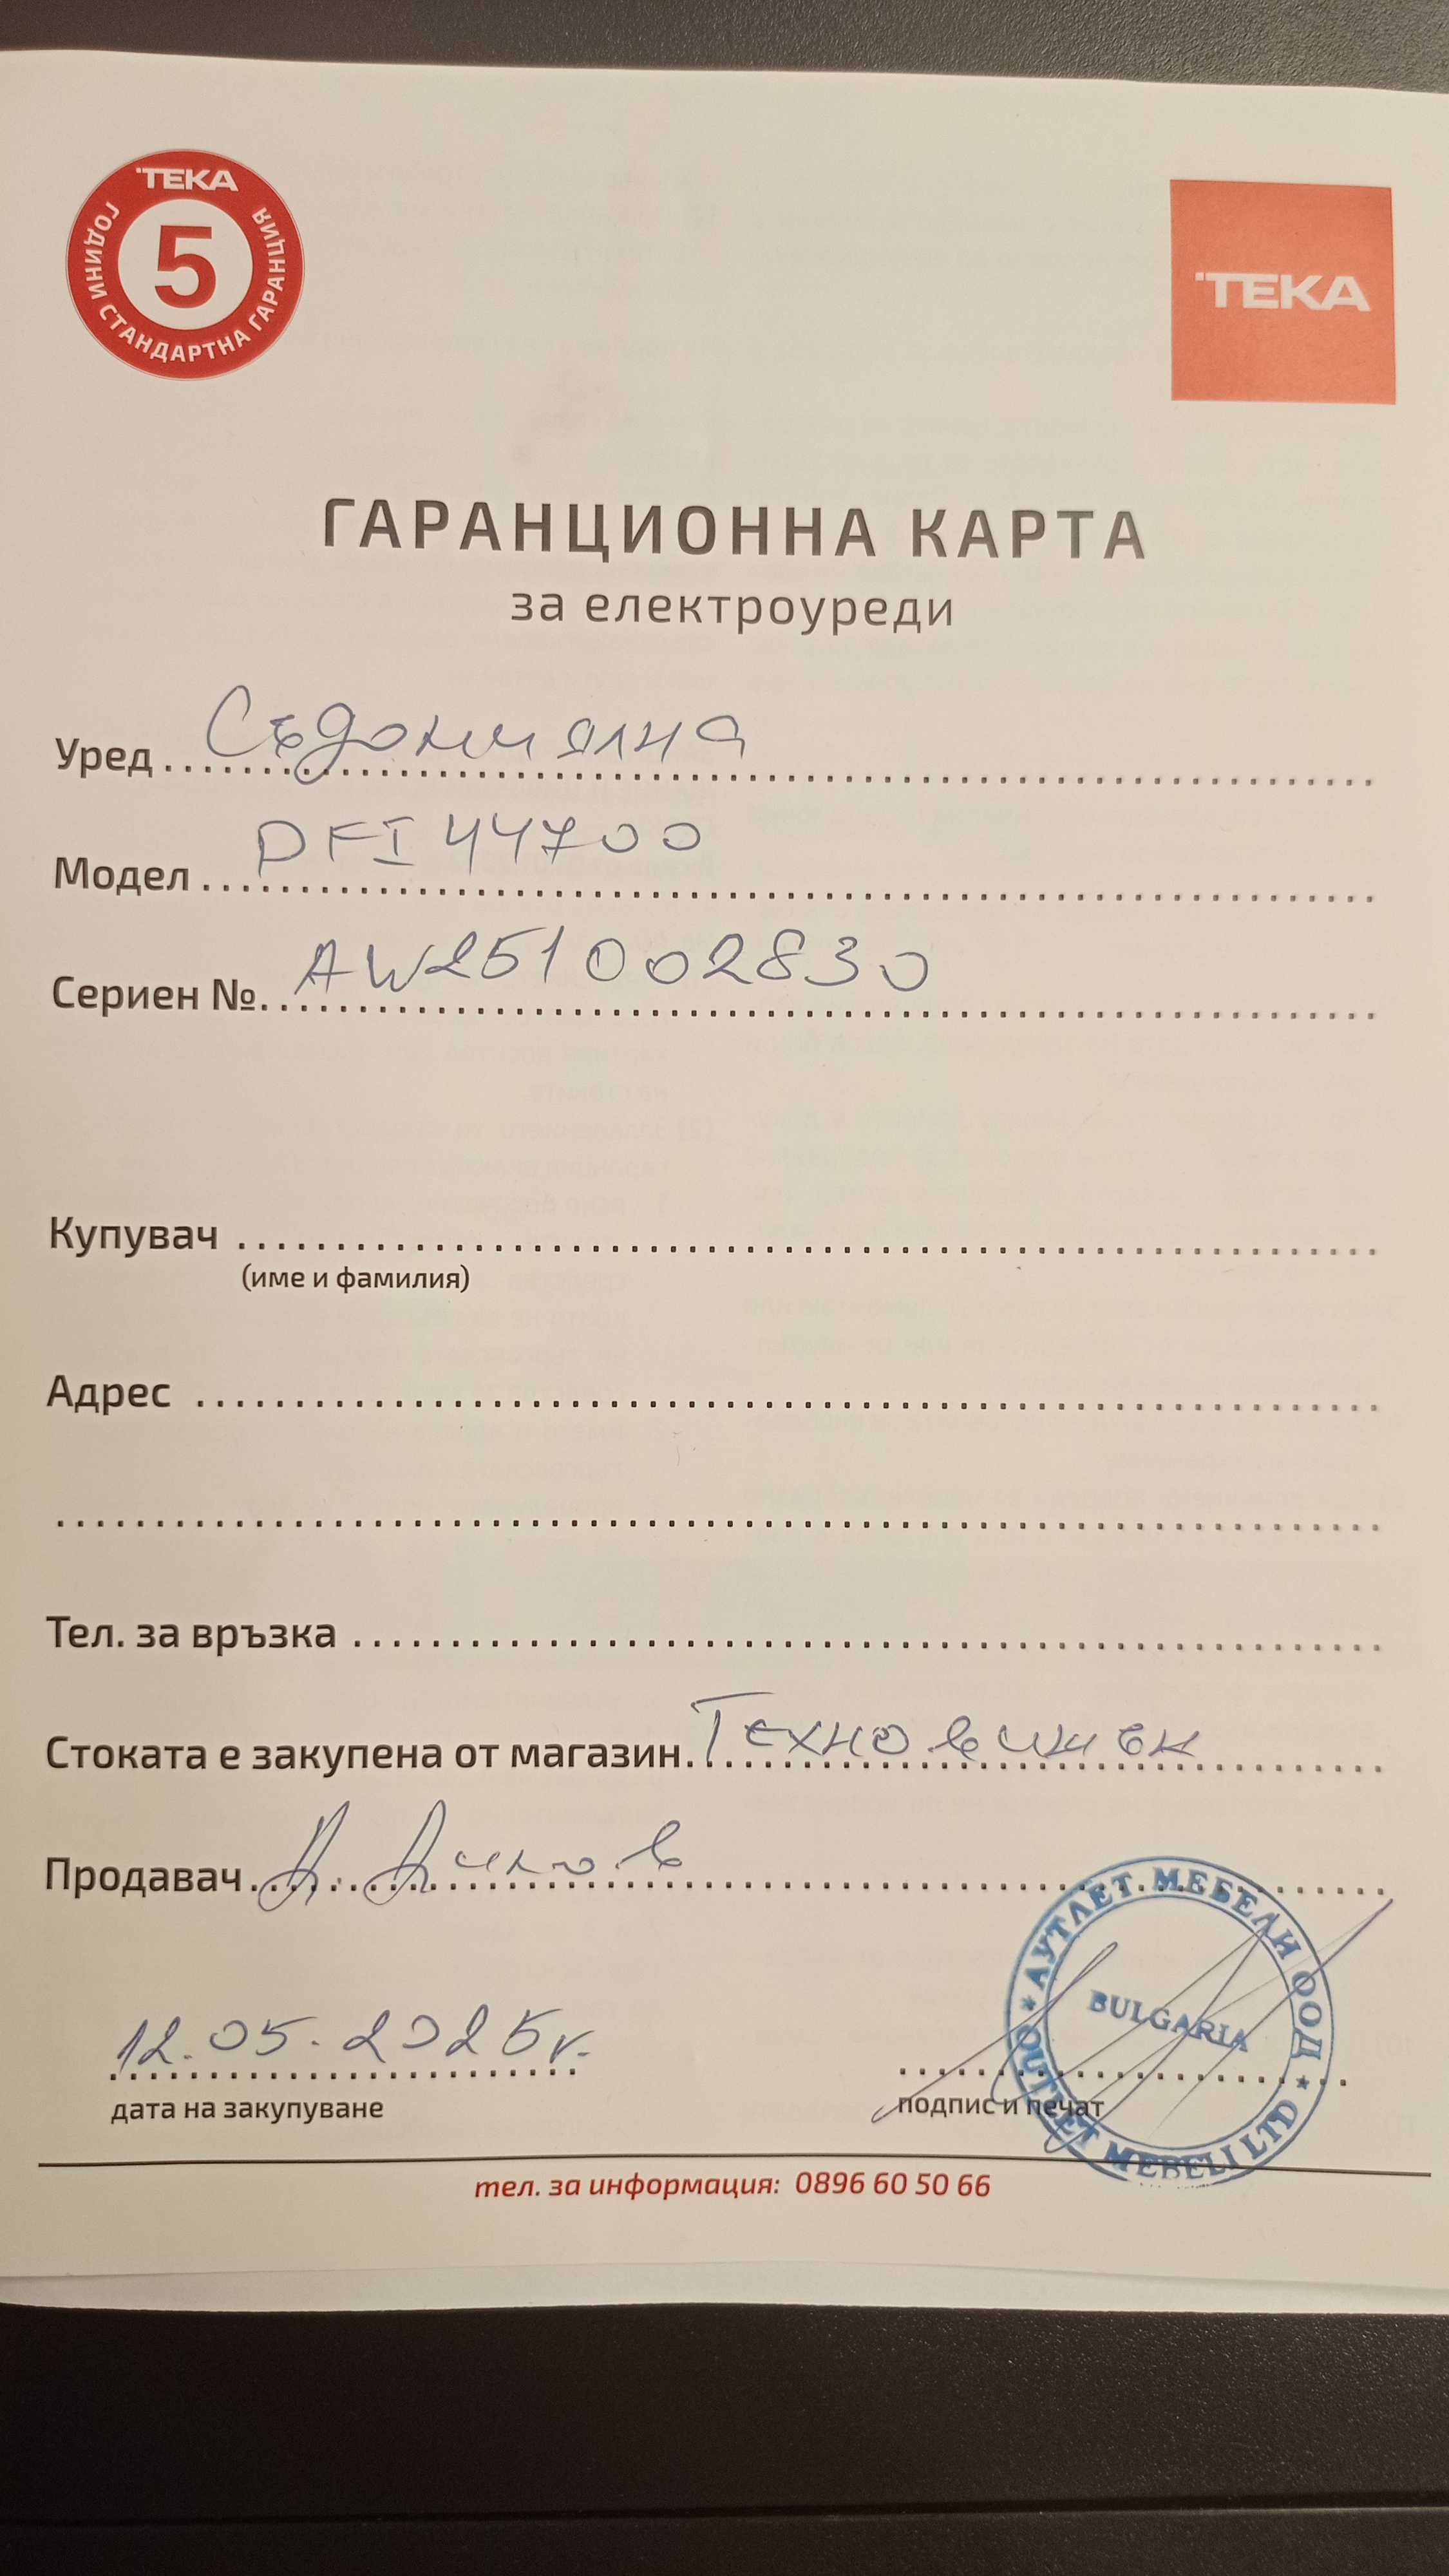 TEKA
5
ГОДИНИ СТАНДАРТНА ГАРАНЦИЯ
TEKA
ГАРАНЦИОННА КАРТА
за електроуреди
Уред Съдомиялна
Модел DFI 44700
Сериен №. AW251002830
Купувач
(име и фамилия)
Адрес
Тел. за връзка
Стоката е закупена от магазин. Техновижън
Продавач
АУТЛЕТ МЕБЕЛИ ООД
BULGARIA
OUTLET MEBELI LTD
12.05.2025г.
дата на закупуване
подпис и печат
тел. за информация: 0896 60 50 66